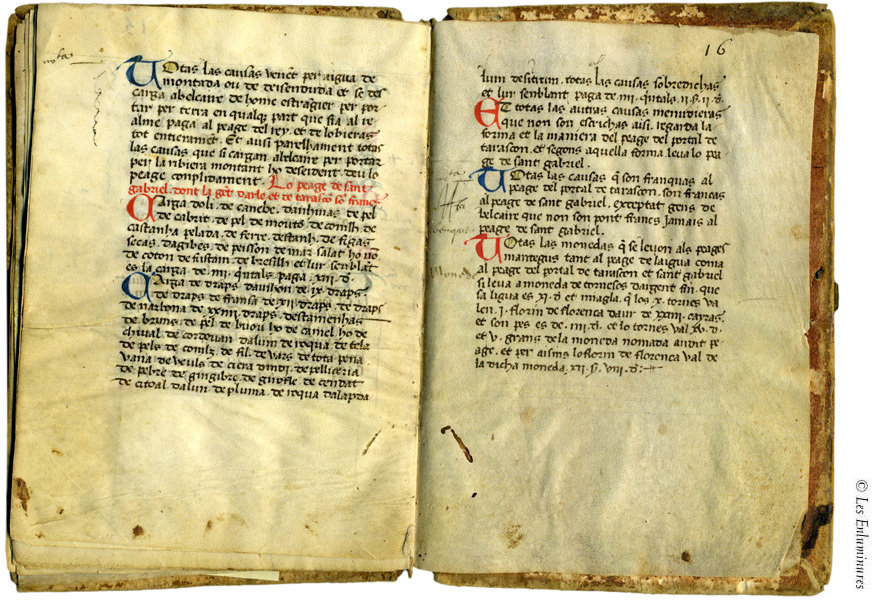 nota
Totas las causas venent per aigua de
montada ou de deissenduda et se des
carga abelcaire de home estrangier per por
tar per terra en qualque part que sia al re
alme paga al peage del rey. et de lobieras
tot entierament. Et aisi parelhament totas
las causas que si cargan abelcaire per portar
per la ribiera montant ho desident. deu lo
peage complidament. Lo peage de sant
gabriel. dont la gent darle et de tarascon son francz
Carga doli. de canebe. danhinas. de pel
de cabrit. de pel de mouton. de conilh. de
castanha pelada. de ferre. destanh. de figas
secas. dagibes. de peisson de mar salat ho non
de coton. de fustani. de bresilh et lur semblant
es la carga de .iii. quintals paga .xii. d.
Carga de draps davilhon. de .ix. draps.
de draps de fransa. de .xii. draps. de draps
de narbona de .xxiii. draps. destamenhas
de bruns. de pel de buou ho de camel ho de
chival. de cordoan. dalum de roqua. de tela
de pels de conilz. de fil. de vars. de tota pena
vana. de veuls. de ciera. dindi. de pellicaria
de pebre. de gingibre. de girofle. de cendat
de citoal. dalum de pluma. de roqua dalapda
16
lum desitium. totas las causas sobredichas
et lur semblant paga de .iii. quintals .ii. s. ii. d.
Et totas las autras causas menudieras
que non son escrichas aisi. regarda la
forma et la maniera del peage del portal de
tarascon. et segons aquella forma leva lo pa
ge de sant gabriel.
Totas las causas que son franquas al
peage del portal de tarascon. son francas
al peage de sant gabriel. exceptat gens de
belcaire que non son point francs jamais al
peage de sant gabriel.
Totas las monedas que se levon als peages
martegus tant al peage de laigua coma
al peage del portal de tarascon et sant gabriel
si leva a moneda de tornesos dargent fin. que
sa ligua es .xi. d. et miagla. que los .x. tornes va
len .i. florin de florenca daur de .xxiiii. cayras.
et son pes es de .iii. d. et lo tornes val .xv. d.
et .v. grans de la moneda nomada
age. et per aisins lo florin de florenca val de
la dicha moneda .xii. s. viii. d.
© Les Enluminures